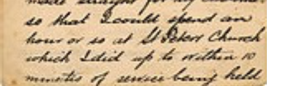 made straight for my
so that I could spend an
hour or so at St Peters Church
which I did up to within 10
minutes of service being held